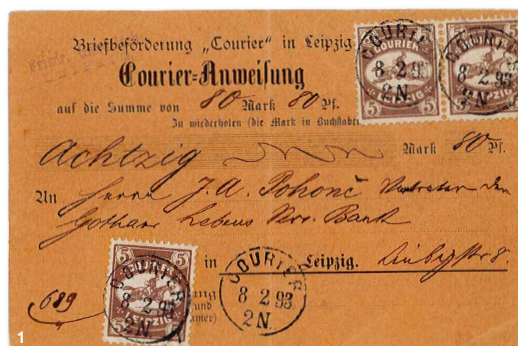 Briefbeförderung „Courier“ in Leipzig.
Courier-Anweisung
auf die Summe von 80 Mark 80 Pf.
Zu wiederholen (die Mark in Buchstaben
Achtzig Mark 80 Pf.
An Herrn J. A. Pohonč Vertreter der
Gothaer Lebens Ver. Bank
in Leipzig.
689
COURIER
5 LEIPZIG 5
COURIER
8 2 93
2N.
COURIER
8 2 93
2N.
5 5
LEIPZIG
COURIER
8 2 93
2N
COURIER
8 2 93
2N.
1